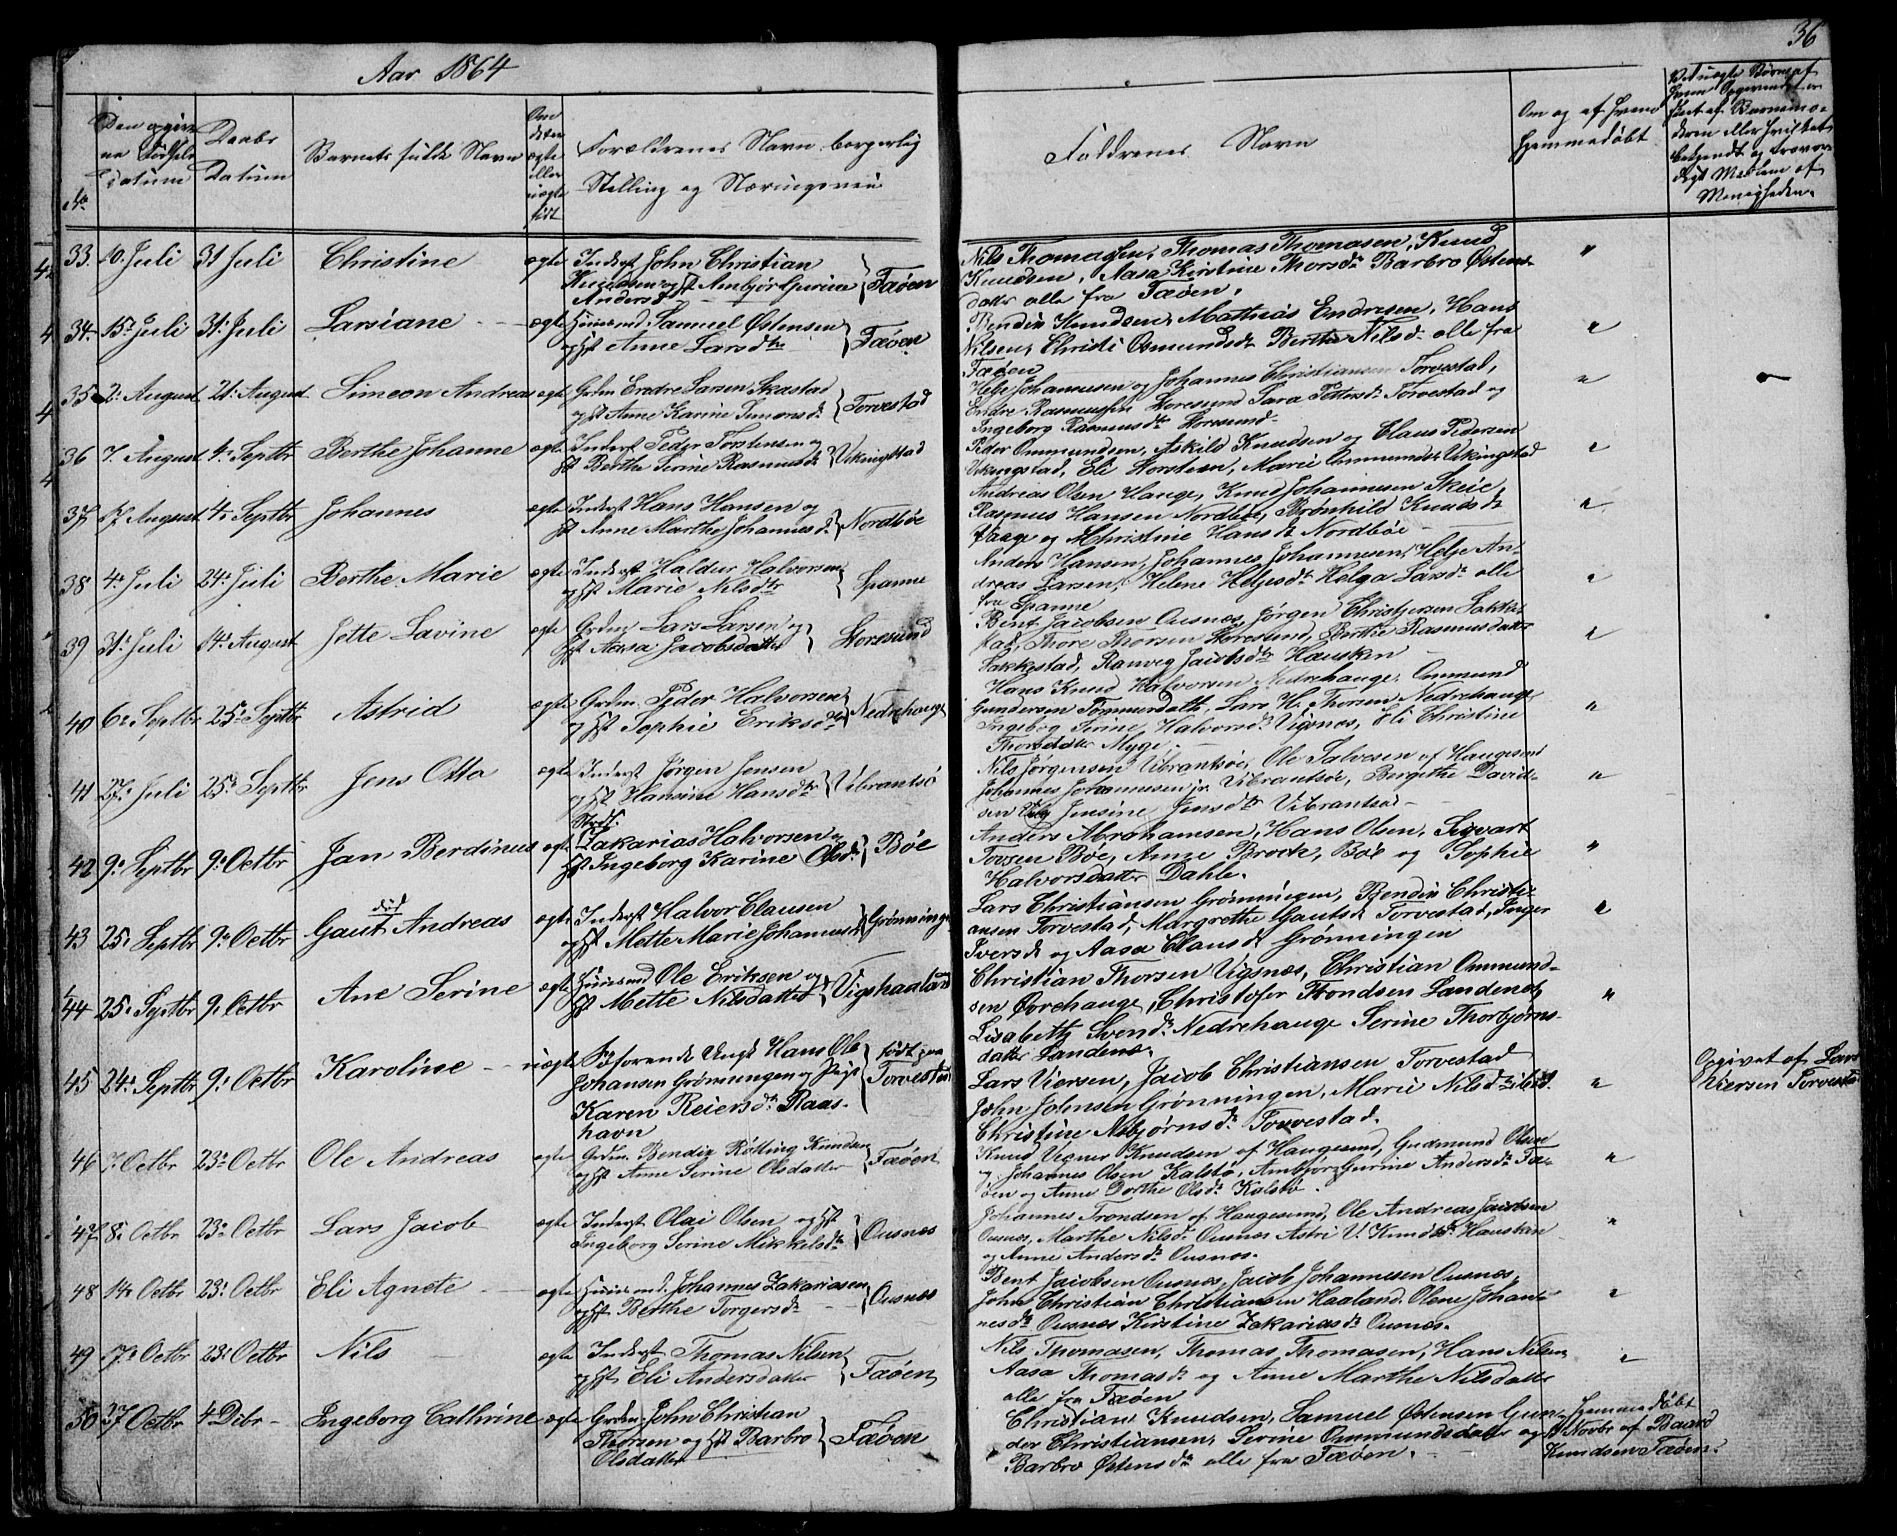 36
Aar 1864
No
Den opgivne Fødsels datum
Daabs Datum
Barnets fulde Navn
Om det er ægte eller uægte født
Forældrenes Navn borgerlig Stilling og Næringsvei
Faddrenes Navn
Om og af hvem hjemmedøbt
33. 20. Juli 31 Juli Christine ægte Inderst John Christian
Knudsen og Hst Anbjør Gurine } Fæøen
Andersd
Nils Thomassen, Thomas Thomasen, Knud
Knudsen, Aasa Kirstine Thorsdtr Barbro Østens-
datter alle fra Fæøen.
34. 15de Juli 31. Juli Larsiane ægte Huusmd. Samuel Østensen
og Hst Anne Larsdtr } Fæøen
Bendix Knudsen, Mathias Endresen, Hans
Nilsen, Christi Osmundsd. Berthe Nilsd. alle fra
Fæøen
35 2. August 21. August Simeon Andreas ægte Grdm. Endre Larsen Skastad
og Hst Anne Karine Simonsd. } Torvestad
Helje Johannesen og Johannes Christiansen Torvestad,
Endre Rasmussen Storesund Sara Pettersd. Torvestad og
Ingeborg Rasmusdtr Storesund
36 7. August 4. Septbr Berthe Johanne ægte Inderst Peder Torstensen og
Hst Berthe Serine Rasmusd. } Vikingstad
Peder Ommundsen, Askild Knudsen og Claus Pedersen
Vikingstad, Eli Torstensen, Marie Ommundsd. Vikingstad
37 17 August 4. Septbr Johannes ægte Inderst Hans Hansen og
Hst Anne Marthe Johannesd. } Nordbøe
Andreas Olsen Hauge, Knud Johannesen Skeie,
Rasmus Hansen Nordbøe, Brønhild Knudsdtr
Vaage og Christine Hansd. Nordbøe
38 4. Juli 24. Juli Berthe Marie ægte Inderst Haldur Halvorsen
og Hst Marie Nilsdtr } Spanne
Anders Hansen, Johannes Johannesen, Helje An-
dreas Larsen, Helene Heljesdtr Helga Larsdtr alle
fra Spanne
39 31. Juli 14. August Jette Lavine ægte Grdm. Lars Larsen og
Hst Aasa Jacobsdatter } Storesund
Bent Jacobsen Ousnæs, Jørgen Christjersen Sakke-
stad, Thore Thorsen Storesund, Berthe Rasmusdatter
Sakkestad, Ranveg Jacobsdtr Hausken
40 6. Septbr 25. Septbr Astrid ægte Grdm. Peder Halvorsen
og Hst Sophie Eriksdtr } Nedrehauge
Hans Knud Halvorsen Nedrehauge, Ommund
Gundersen Tommerdal, Lars H. Thorsen Nedrehauge
Ingeborg Serine Halvorsd. Vigsnæs, Eli Christine
Thorsdatter Myge.
41 27. Juli 25. Septbr Jens Otto ægte Inderst Jørgen Jensen
og Hst Hansine Hansdtr } Vibrantsø
Nils Jørgensen Vibrantsøe, Ole Salvesen af Haugesund
Johannes Johannesen jr. Vibrantsøe, Bergithe David-
sen og Jensine Jensdtr Vibrantsøe
42 9. Septbr 9. Octbr Jan Berdinus ægte
Zakarias Halvorsen og
Hst Ingeborg Karine Olsd. } Bøe
Anders Abrahamsen, Hans Olsen, Sigvart
Torsen Bøe, Anne Brock, Bøe og Sophie
Halvorsdatter Dahle.
43 25. Septbr 9. Octbr Gaut Andreas ægte Inderst Halvor Clausen
død
og Hst Mette Marie Johannesd. } Grønningen
Lars Christiansen Grønningen, Bendix Christi-
ansen Torvestad, Margrethe Gautsd. Torvestad, Inger
Iversd. og Aasa Clausd. Grønningen
44 25. Septbr 9. Octbr Ane Serine ægte Huusmd Ole Eriksen og
Hst Mette Nilsdatter } Vigshaaland
Christian Thorsen Vigsnæs, Christian Ommund-
sen Øvrehauge, Christofer Trondsen Sandenes,
Lisabeth Svend. Nedrehauge Serine Thorbjørns-
datter Sandenes.
45 24. Septbr 9. Octbr Karoline uægte Farfarende Ungk Hans Ole
Johansen Grønningen og Pige
Karen Reiersdtr Raas-
havn } født paa Torvestad
Lars Viersen, Jacob Christiansen Torvestad
John Johnsen Grønningen, Marie Nilsd.
Christine Asbjørnsd. Torvestad.
Opgivet af Lars
Viersen Torvestad
46 7. Octbr 23. Octbr Ole Andreas ægte Grdm. Bendix Røtting Knudsen
og Hst Anne Serine Olsdatter } Fæøen
Knud Vigner Knudsen af Haugesund, Gudmund Olsen
og Johannes Olsen Kalstø, Anbjør Gurine Andersd. Fæ-
øen og Anne Dorthe Olsd. Kalstø.
47 8. Octbr 23. Octbr Lars Jacob ægte Inderst Olai Olsen og Hst
Ingeborg Serine Mikkelsdtr } Ousnæs
Johannes Trondsen af Haugesund, Ole Andreas Jacobsen
Ousnæs, Marthe Nilsd. Ousnæs Astri V. Knudsd. Hausken
og Anne Andersd. Ousnæs.
48 14. Octbr 23. Octbr Eli Agnete ægte Huusmd. Johannes Zakariasen
og Hst Berthe Torgersdtr } Ousnæs
Bent Jacobsen Ousnæs, Jacob Johannesen Ousnæs,
John Christian Christiansen Haaland, Olene Johan-
nesdtr Ousnæs Kirstine Zakariasd. Ousnæs.
49 17. Octbr 23. Octbr Nils ægte Inderst Thomas Nilsen
og Hst Eli Andersdatter } Fæøen
Nils Thomasen, Thomas Thomasen, Hans Nilsen,
Aasa Thomasd. og Anne Marthe Nilsdatter
alle fra Fæøen
50 27 Octbr 4 Dcbr Ingeborg Cathrine ægte Grdm. John Christian
Thorsen og Hst Barbro
Olsdatter } Fæøen
Christian Knudsen, Samuel Østensen Gun-
der Christiansen, Serine Ommundsdatter og
Barbro Østensdtr alle fra Fæøen.
hjemmedøbt
Novbr af Baard
Knudsen Fæøen.